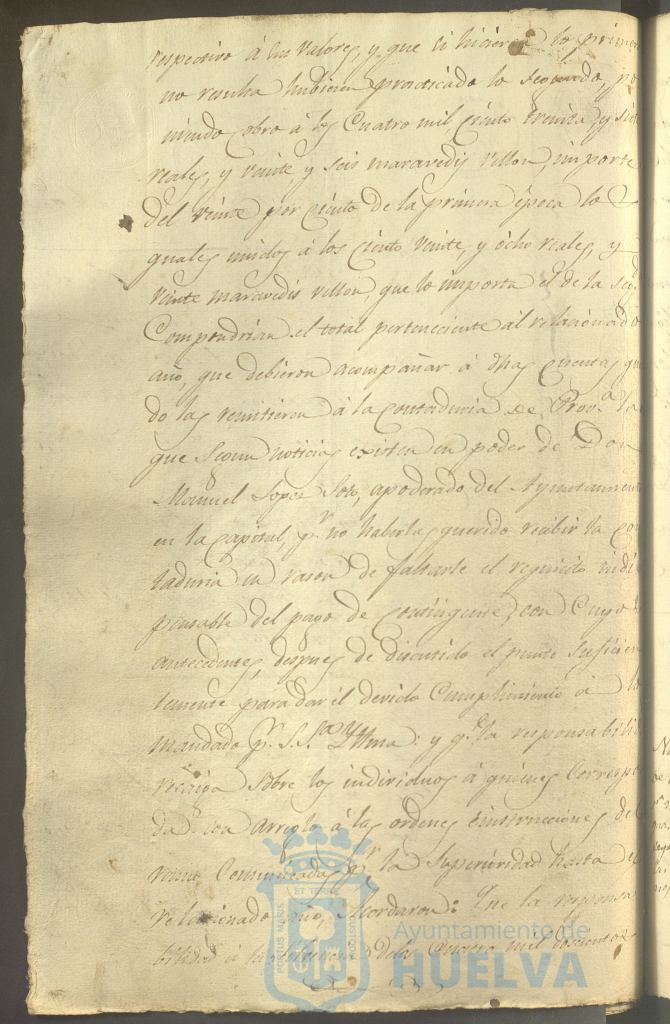 respectivo á sus valores, y que si hicieron lo prime
no resulta hubiesen practicado lo segundo, po
niendo cobro á los Cuatro mil ciento treinta y siete
reales, y veinte y seis maravedis vellon, importe
del veinte por ciento de la primera época lo
quales unidos á los ciento veinte, y ocho reales, y
veinte maravedis vellon, que lo importa el de la seg
Compondrian el total perteneciente al relacionado
año, que debieron acompañar á dhas cuentas qu
do las remitieron á la Contaduria de Prov.ª la
que segun noticias existen en poder de Don
Manuel Lopez Soto, apoderado del Ayuntamien
en la Capital, p.r no haberlas querido recibir la con
taduria en razon de faltarle el requisito indi
pensable del pago de contingente, con Cuyo
antecedente, despues de discutido el punto suficien
temente para dar el devido Cumplimiento á lo
mandado p.r S.S.ª Yltma. y q.e la responsabili
recaiga sobre los individuos á quienes Corresp
da con arreglo á las ordenes é instrucciones del
ramo Comunicadas p.r la Superioridad hasta el
relacionado año, Acordaron: Que la responsa
bilidad á la de los Cuatro mil doscientos
PORTUS MARIS
ET TERRE
CUSTODIA
Ayuntamiento de
HUELVA